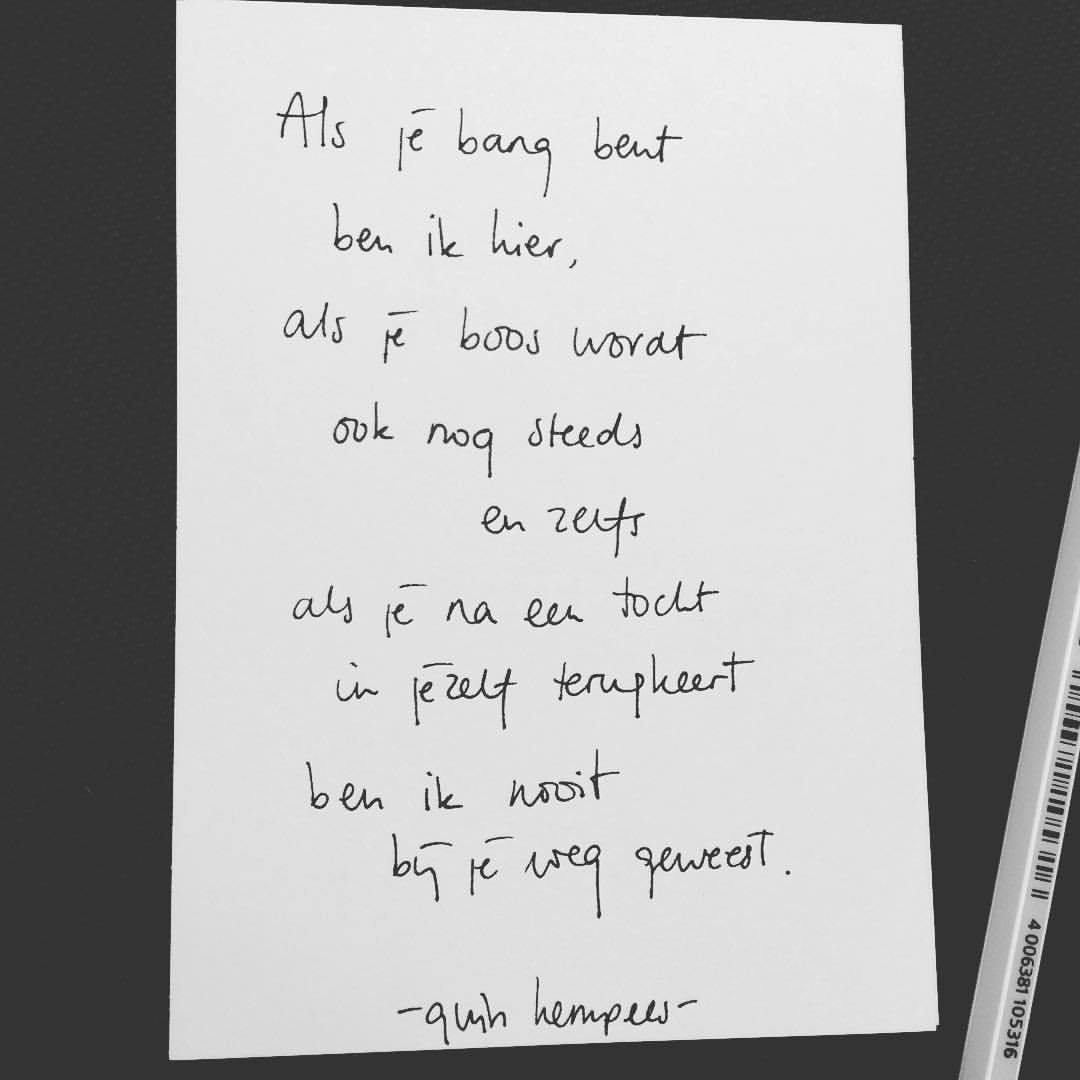 Als je bang bent
ben ik hier,
als je boos wordt
ook nog steeds
en zelfs
als je na een tocht
in jezelf terugkeert
ben ik nooit
bij je weg geweest.
hempees
4 006381 105316